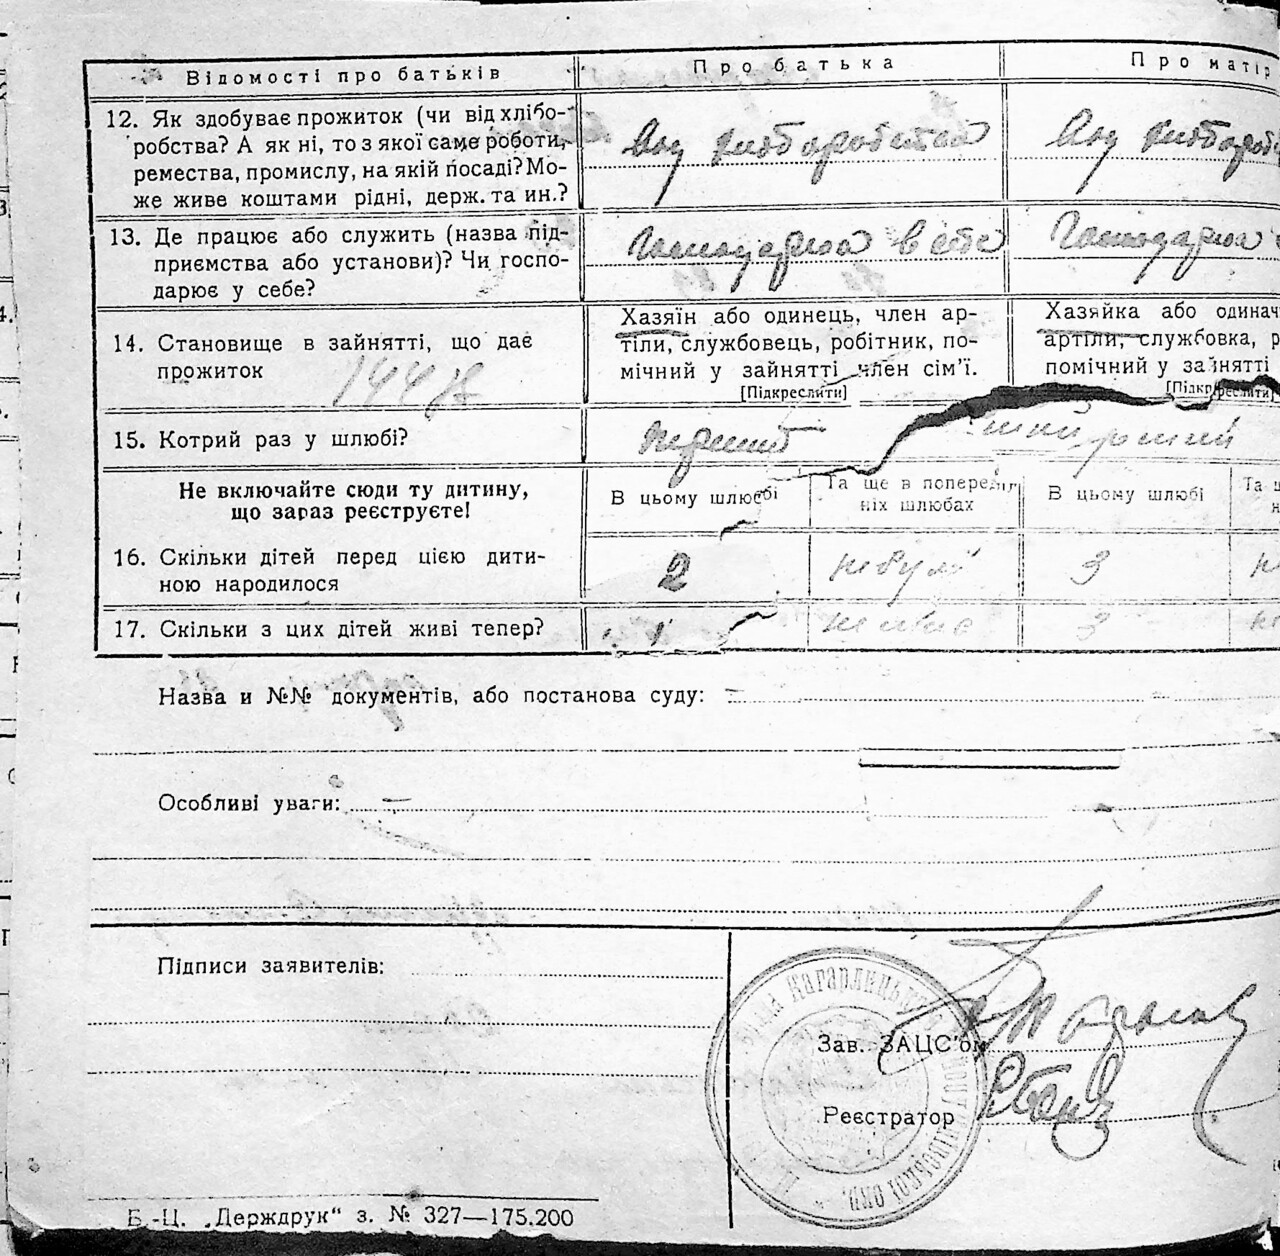 Відомості про батьків
Про батька
Про матір
12. Як здобуває прожиток (чи від хлібо-
робства? А як ні, то з якої саме роботи,
ремества, промислу, на якій посаді? Мо-
же живе коштами рідні, держ. та ин.?
Від хліборобства
Від хлібороб
13. Де працює або служить (назва під-
приємства або установи)? Чи госпо-
дарює у себе?
Господарює в себе
Господарює
14. Становище в зайнятті, що дає
прожиток
Хазяїн або одинець, член ар-
тілі, службовець, робітник, по-
мічний у зайнятті член сім'ї.
[Підкреслити]
Хазяйка або одинач
артілі, службовка, р
помічний у зайнятті
[Підкреслити]
15. Котрий раз у шлюбі?
перший
Не включайте сюди ту дитину,
що зараз реєструєте!
В цьому шлюбі
Та ще в поперед-
ніх шлюбах
В цьому шлюбі
Та щ
н
16. Скільки дітей перед цією дити-
ною народилося
2
не було
3
17. Скільки з цих дітей живі тепер?
1
немає
3
Назва и №№ документів, або постанова суду: —
Особливі уваги: —
Підписи заявителів:
Зав. ЗАЦС'ом
Реєстратор
Б.-Ц. „Держдрук“ з. № 327—175.200